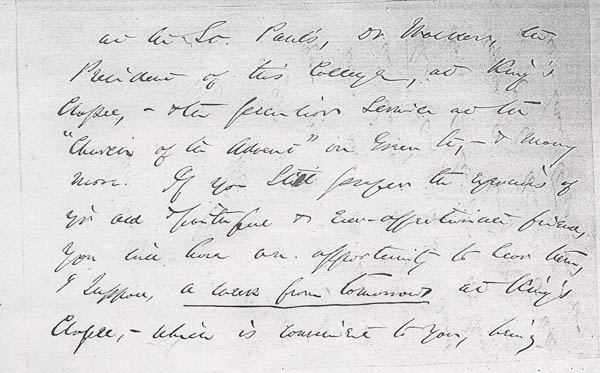 at the St. Paul's, Dr Walker, the
President of this College, at King's
Chapel, - & the peculiar service at the
"Church of the Advent" in Green St, - & many
more. If you still prefer the exercises of
yr old faithful & Ever-affectionate friend,
you will have an opportunity to hear them,
I suppose, a week from tomorrow at King's
Chapel, - which is convenient to you, being